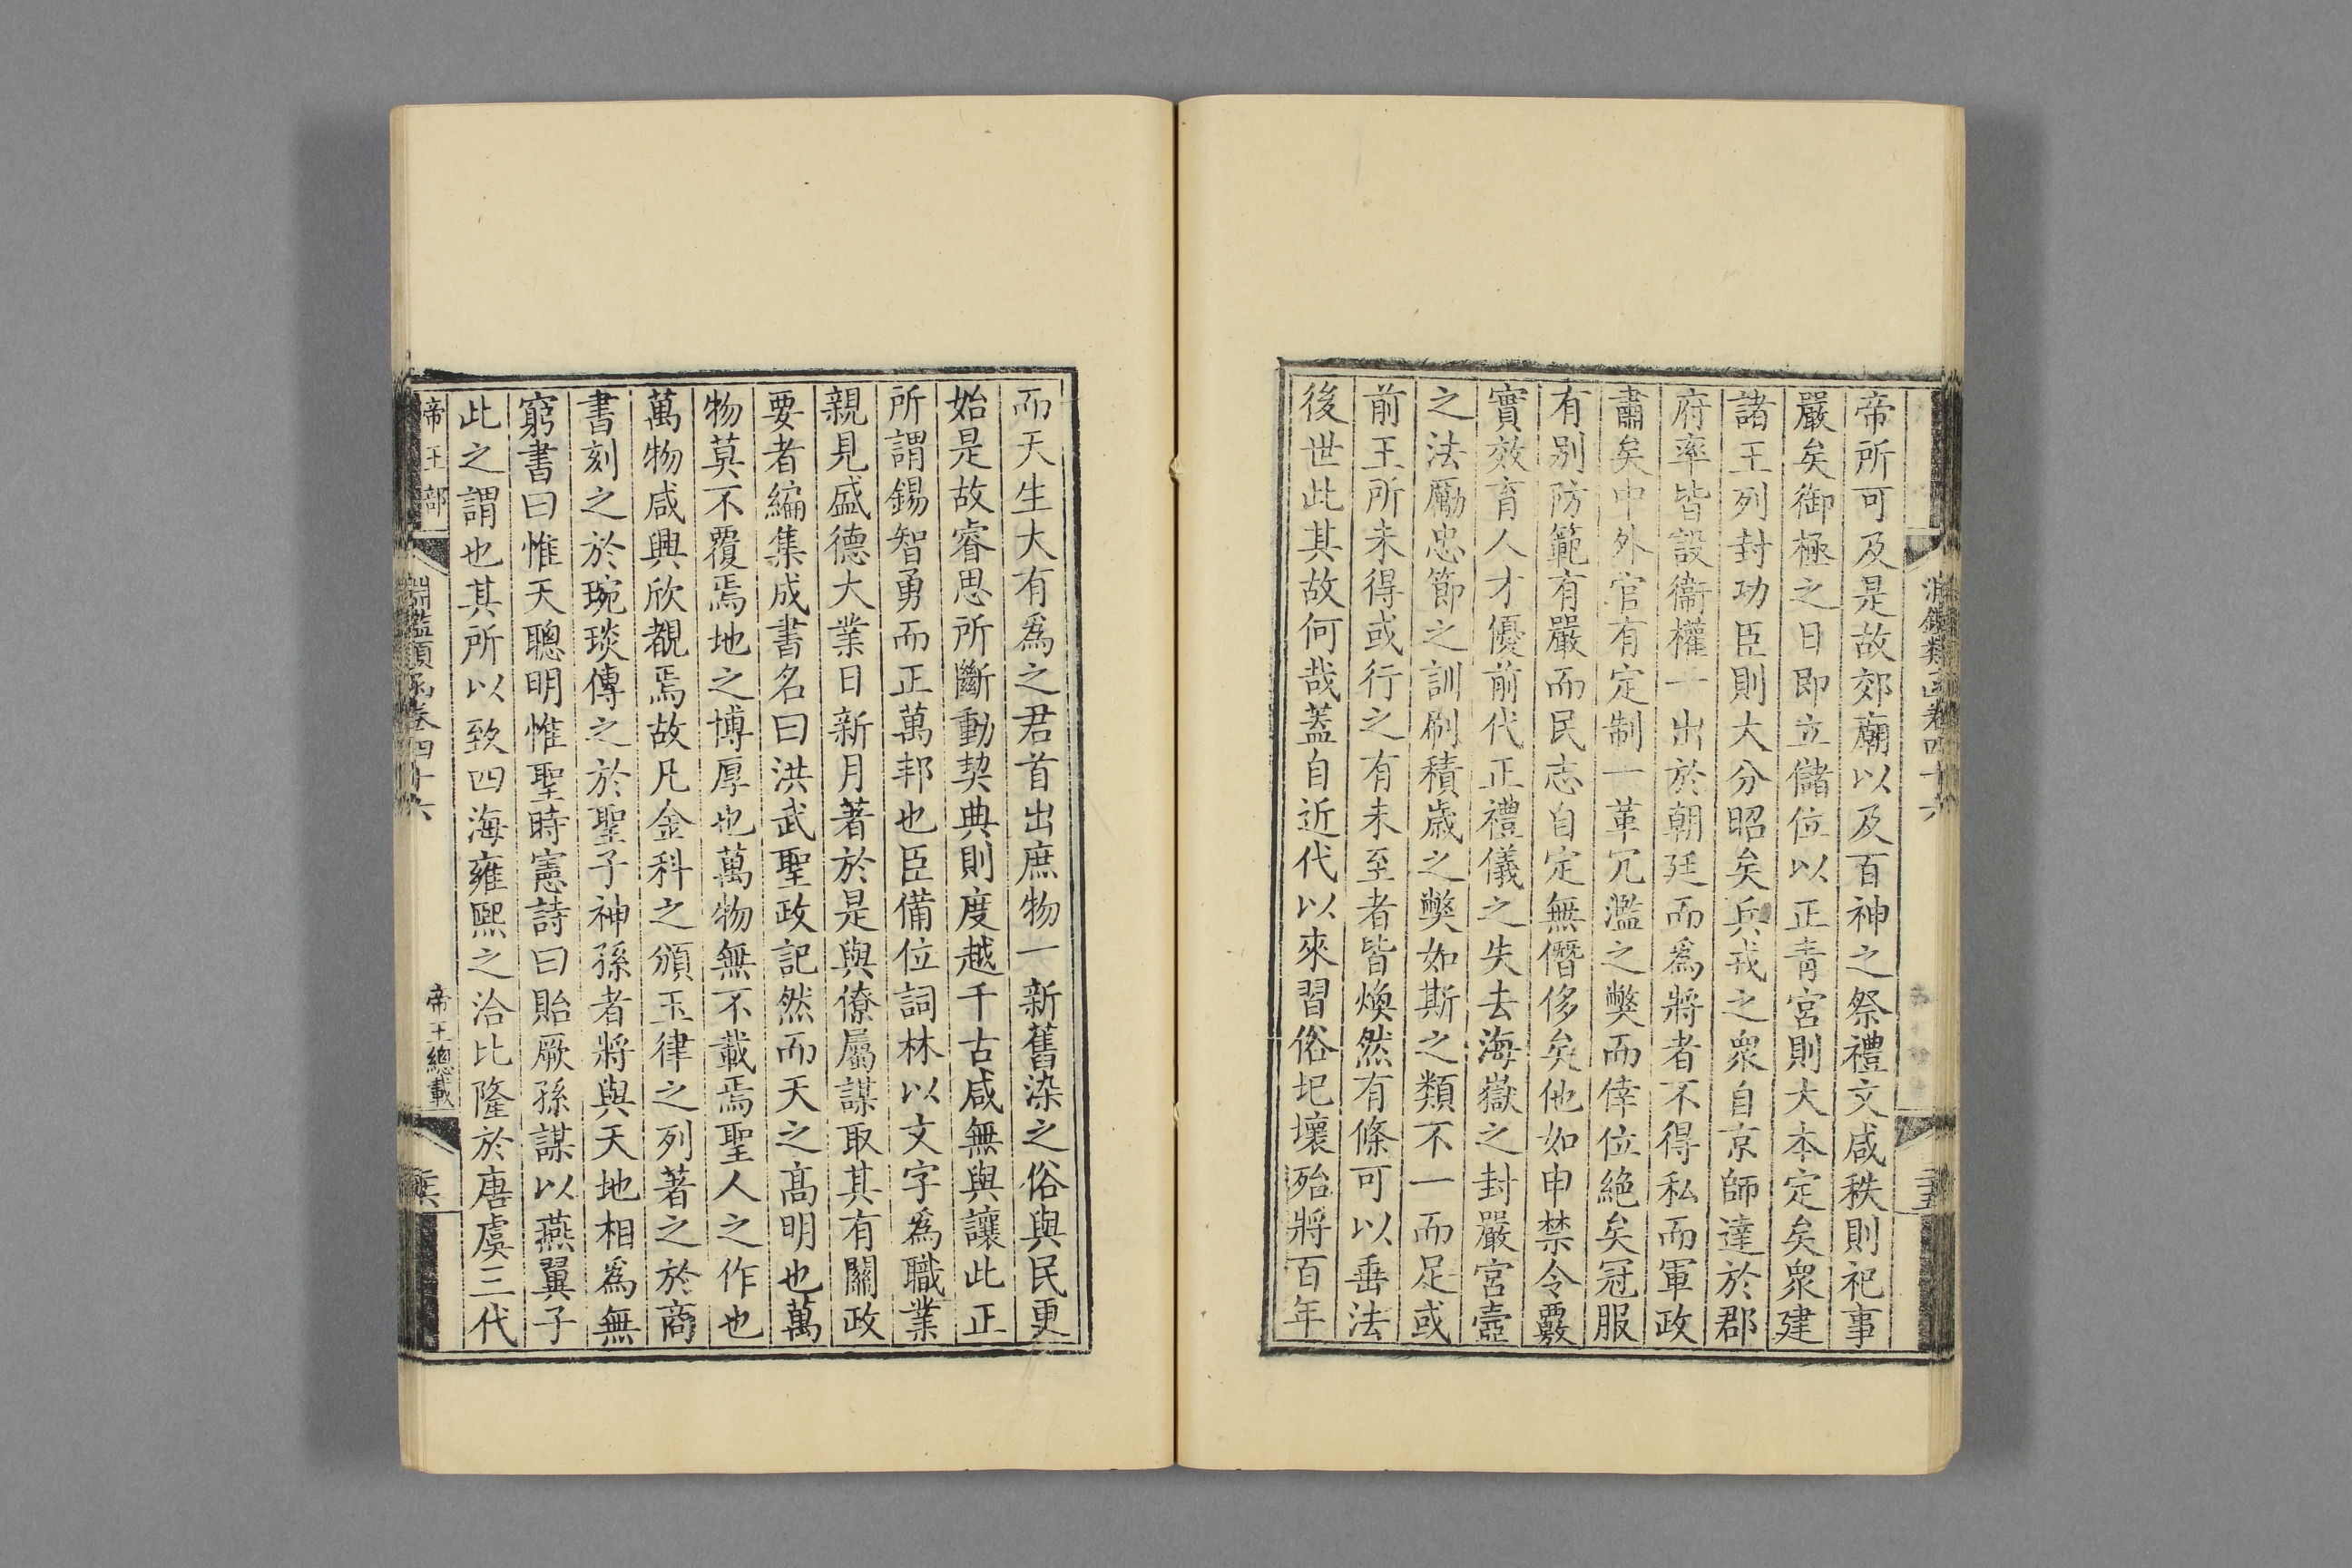 淵鑑類函卷四十六
帝所可及是故郊廟以及百神之祭禮文咸秩則祀事
嚴矣御極之日即立儲位以正青宮則大本定矣衆建
諸王列封功臣則大分昭矣兵戎之衆自京師達於郡
府率皆設衞權一出於朝廷而爲將者不得私而軍政
肅矣中外官有定制一革冗濫之獘而倖位絕矣冠服
有别防範有嚴而民志自定無僭侈矣他如申禁令覈
實效育人才優前代正禮儀之失去海嶽之封嚴宮壼
之法勵忠節之訓刷積歲之獘如斯之類不一而足或
前王所未得或行之有未至者皆煥然有條可以垂法
後世此其故何哉蓋自近代以來習俗圮壞殆將百年
而天生大有爲之君首出庶物一新舊染之俗與民更
始是故睿思所斷動契典則度越千古咸無與讓此正
所謂錫智勇而正萬邦也臣備位詞林以文字爲職業
親見盛德大業日新月著於是與僚屬謀取其有關政
要者編集成書名曰洪武聖政記然而天之高明也萬
物莫不覆焉地之博厚也萬物無不載焉聖人之作也
萬物咸興欣覩焉故凡金科之頒玉律之列著之於商
書刻之於琬琰傳之於聖子神孫者將與天地相爲無
窮書曰惟天聰明惟聖時憲詩曰貽厥孫謀以燕翼子
此之謂也其所以致四海雍熙之洽比隆於唐虞三代
帝王部
淵鑑類函卷四十六
帝王總載